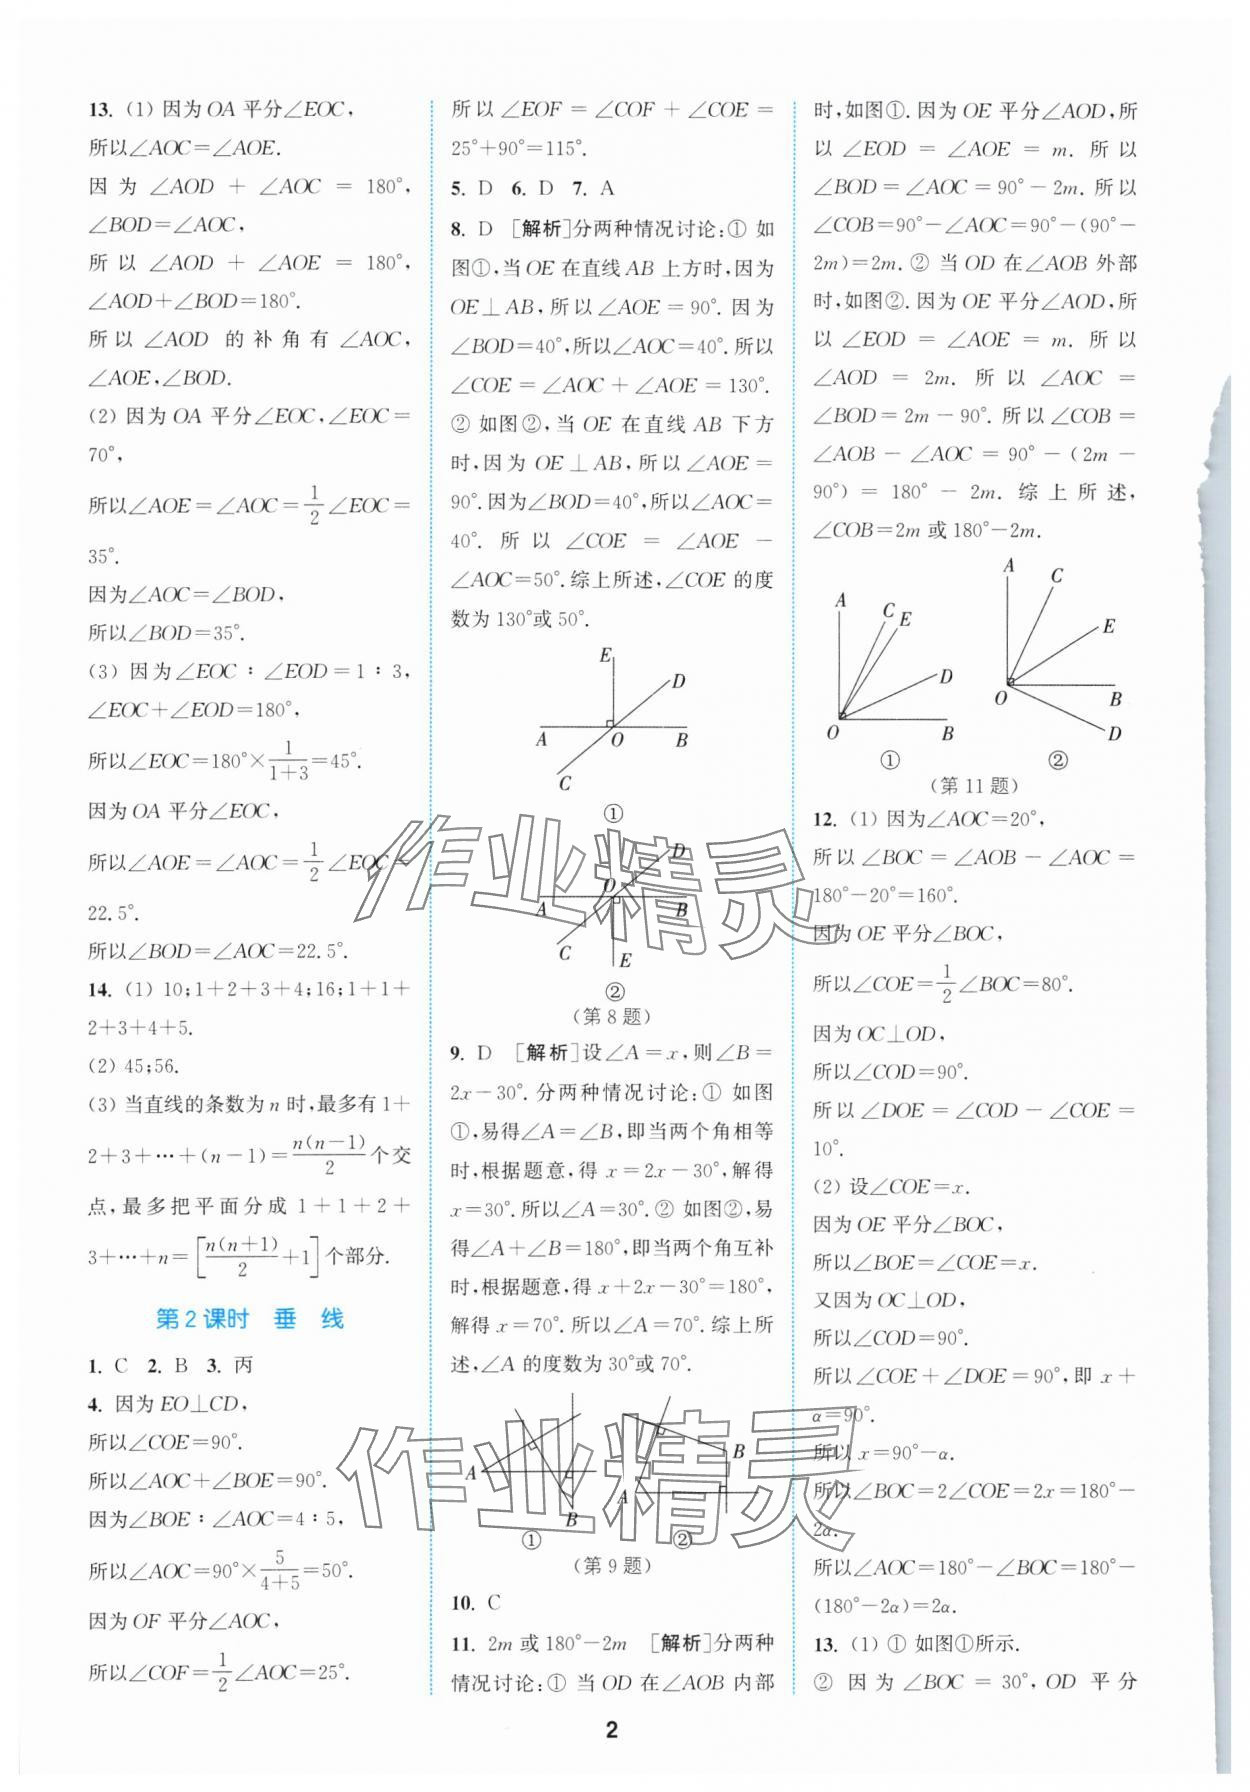 13. (1) 因为OA平分∠EOC,
所以∠AOC=∠AOE.
因为 ∠AOD + ∠AOC = 180°,
∠BOD=∠AOC,
所以 ∠AOD + ∠AOE = 180°,
∠AOD+∠BOD=180°.
所以 ∠AOD 的补角有 ∠AOC,
∠AOE,∠BOD.
(2) 因为OA平分∠EOC,∠EOC=
70°,
所以∠AOE=∠AOC=1/2∠EOC=
35°.
因为∠AOC=∠BOD,
所以∠BOD=35°.
(3) 因为∠EOC∶∠EOD=1∶3,
∠EOC+∠EOD=180°,
所以∠EOC=180°×1/(1+3)=45°.
因为OA平分∠EOC,
所以∠AOE=∠AOC=1/2∠EOC=
22.5°.
所以∠BOD=∠AOC=22.5°.
14. (1) 10;1+2+3+4;16;1+1+
2+3+4+5.
(2) 45;56.
(3) 当直线的条数为n时,最多有1+
2+3+…+(n-1)=n(n-1)/2个交
点,最多把平面分成 1+1+2+
3+…+n=[n(n+1)/2+1]个部分.
第2课时 垂 线
1. C 2. B 3. 丙
4. 因为EO⊥CD,
所以∠COE=90°.
所以∠AOC+∠BOE=90°.
因为∠BOE∶∠AOC=4∶5,
所以∠AOC=90°×5/(4+5)=50°.
因为OF平分∠AOC,
所以∠COF=1/2∠AOC=25°.
所以 ∠EOF = ∠COF + ∠COE =
25°+90°=115°.
5. D 6. D 7. A
8. D [解析]分两种情况讨论:① 如
图①,当OE在直线AB上方时,因为
OE⊥AB,所以∠AOE=90°.因为
∠BOD=40°,所以∠AOC=40°.所以
∠COE=∠AOC+∠AOE=130°.
② 如图②,当OE在直线AB下方
时,因为OE⊥AB,所以∠AOE=
90°.因为∠BOD=40°,所以∠AOC=
40°.所以∠COE=∠AOE-
∠AOC=50°.综上所述,∠COE的度
数为130°或50°.
E
D
A O B
C
①
D
O
A B
C
E
②
(第8题)
9. D [解析]设∠A=x,则∠B=
2x-30°.分两种情况讨论:① 如图
①,易得∠A=∠B,即当两个角相等
时,根据题意,得x=2x-30°,解得
x=30°.所以∠A=30°.② 如图②,易
得∠A+∠B=180°,即当两个角互补
时,根据题意,得x+2x-30°=180°,
解得x=70°.所以∠A=70°.综上所
述,∠A的度数为30°或70°.
A
B
①
B
A
②
(第9题)
10. C
11. 2m或180°-2m [解析]分两种
情况讨论:① 当OD在∠AOB内部
时,如图①.因为OE平分∠AOD,所
以∠EOD=∠AOE=m.所以
∠BOD=∠AOC=90°-2m.所以
∠COB=90°-∠AOC=90°-(90°-
2m)=2m.② 当OD在∠AOB外部
时,如图②.因为OE平分∠AOD,所
以∠EOD=∠AOE=m.所以
∠AOD=2m.所以∠AOC=
∠BOD=2m-90°.所以∠COB=
∠AOB-∠AOC=90°-(2m-
90°)=180°-2m.综上所述,
∠COB=2m或180°-2m.
A
C
E
D
O B
①
A
C
E
O B
D
②
(第11题)
12. (1) 因为∠AOC=20°,
所以∠BOC=∠AOB-∠AOC=
180°-20°=160°.
因为OE平分∠BOC,
所以∠COE=1/2∠BOC=80°.
因为OC⊥OD,
所以∠COD=90°.
所以∠DOE=∠COD-∠COE=
10°.
(2) 设∠COE=x.
因为OE平分∠BOC,
所以∠BOE=∠COE=x.
又因为OC⊥OD,
所以∠COD=90°.
所以∠COE+∠DOE=90°,即x+
α=90°.
所以x=90°-α.
所以∠BOC=2∠COE=2x=180°-
2α.
所以∠AOC=180°-∠BOC=180°-
(180°-2α)=2α.
13. (1) ① 如图①所示.
② 因为∠BOC=30°,OD平分
2
作业精灵
作业精灵